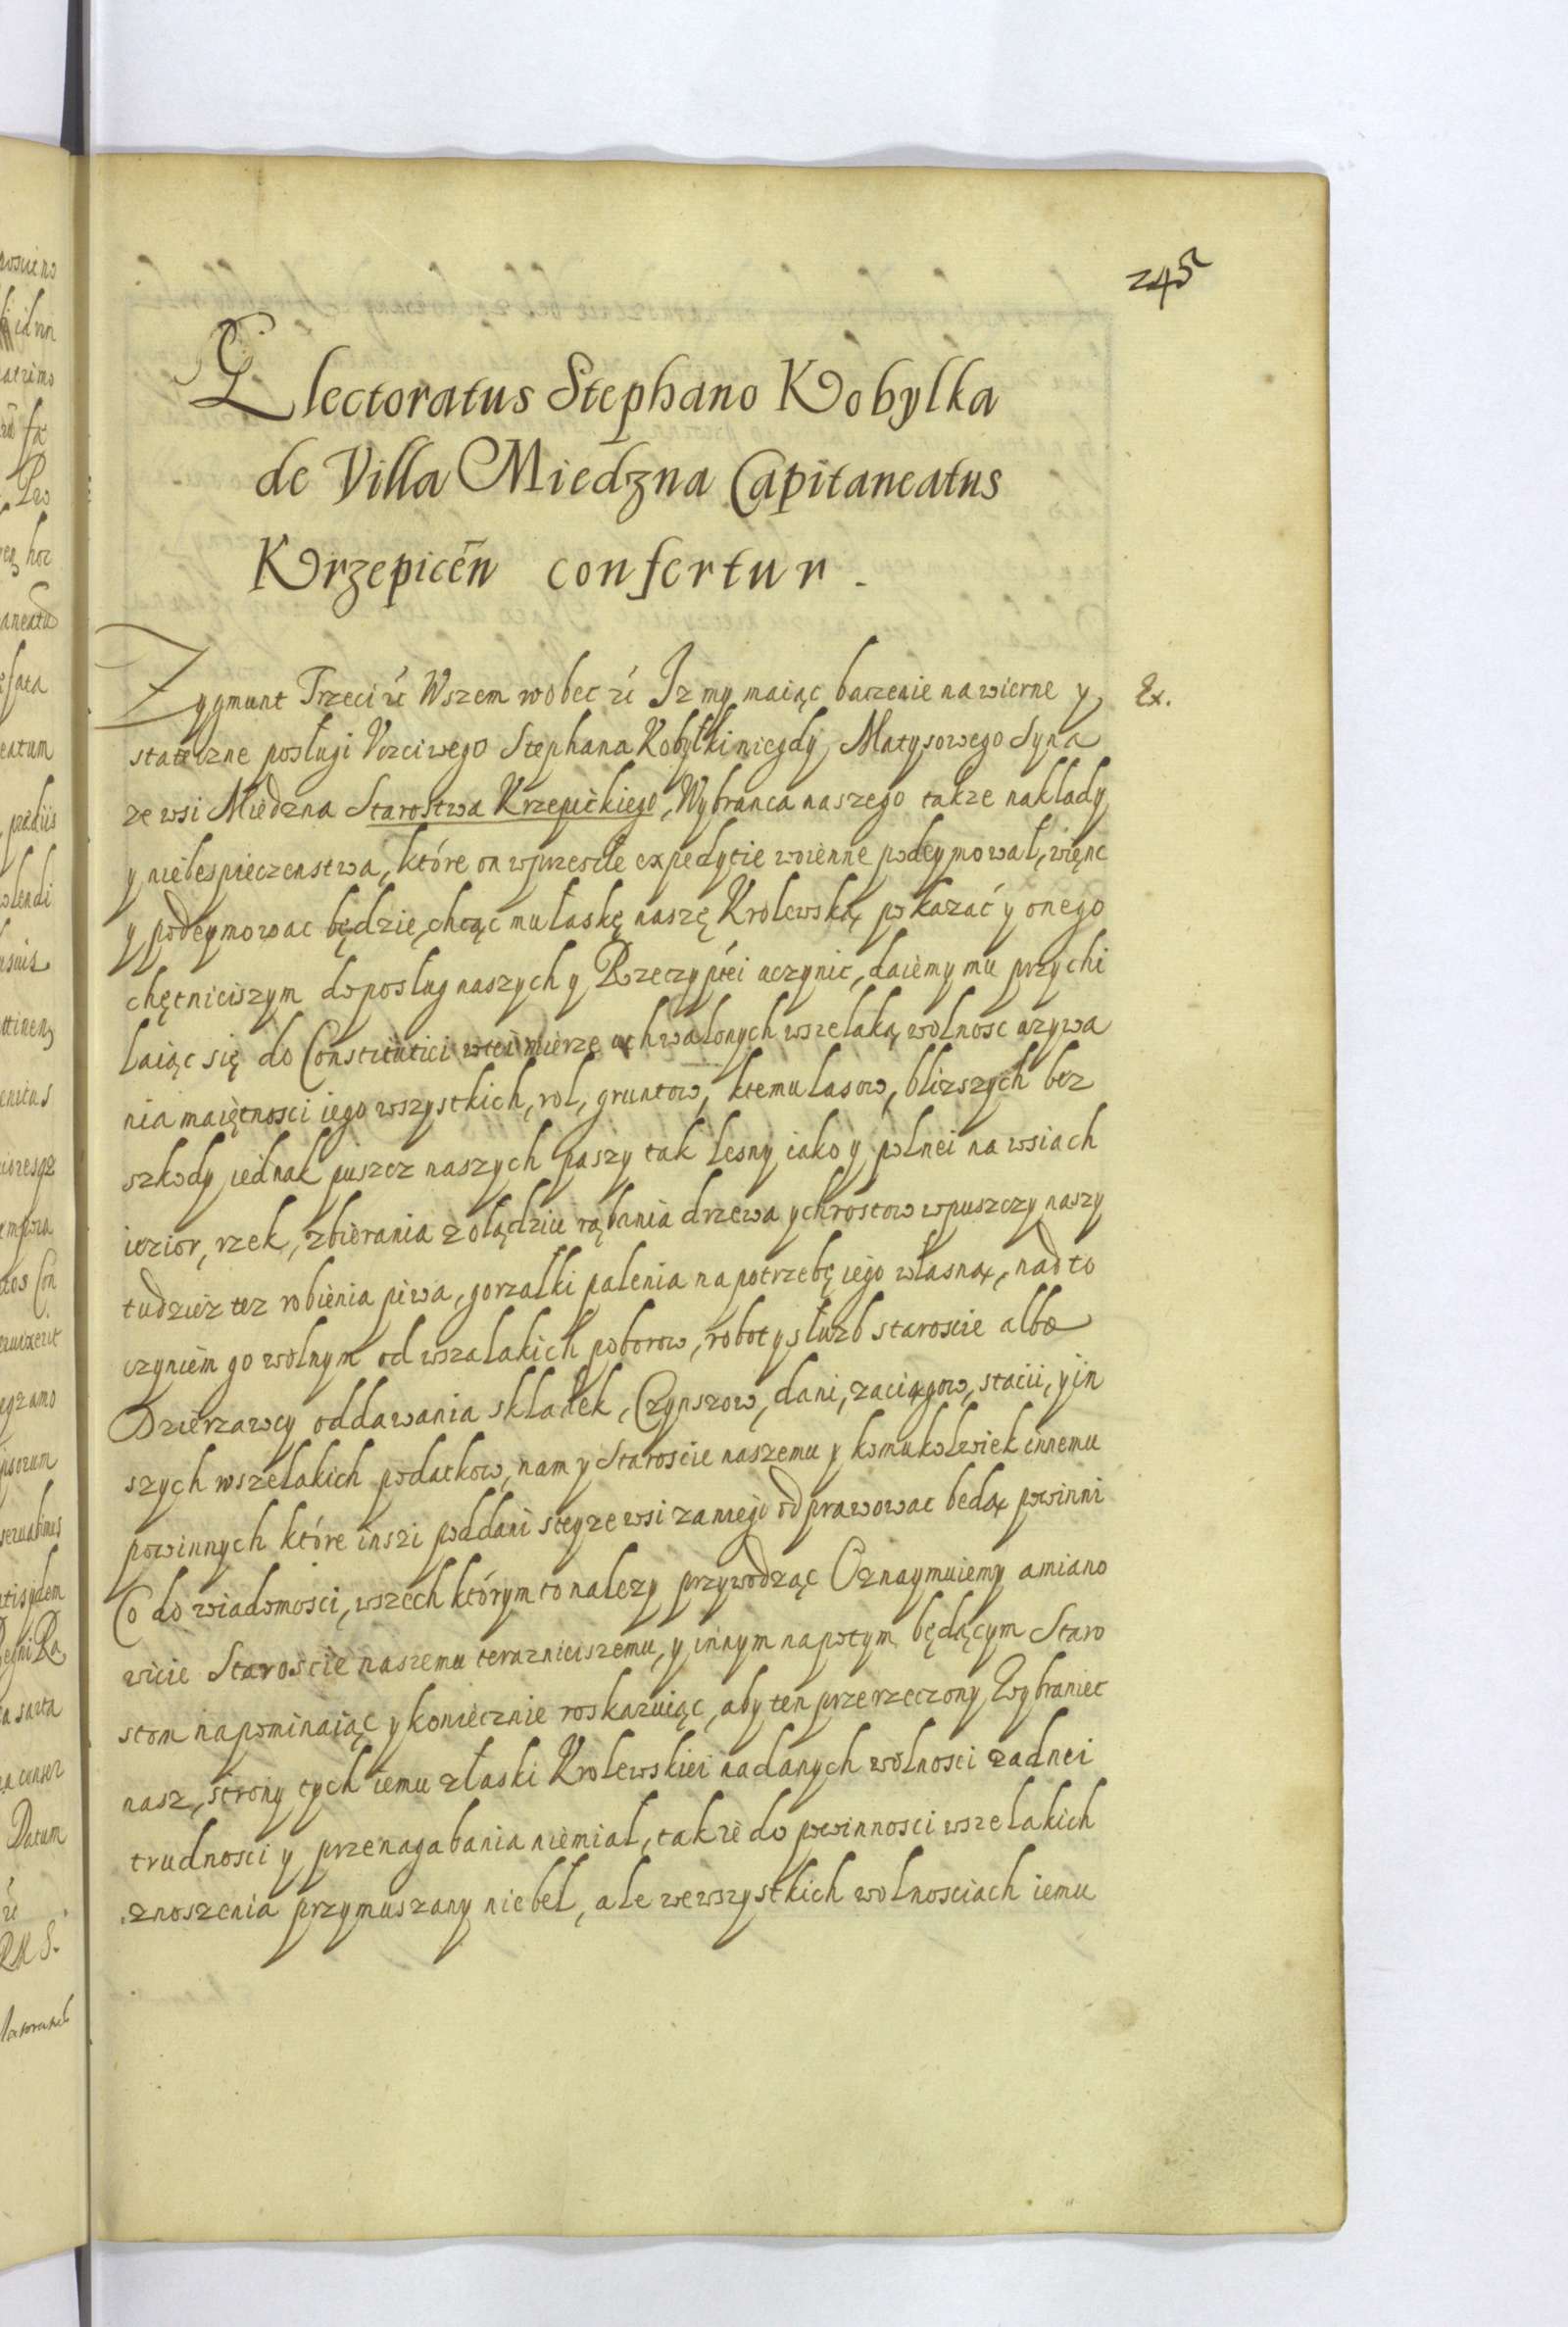 245
Electoratus Stephano Kobylka
de Villa Miedzna Capitaneatus
Krzepicen̄ confertur.
Zygmunt Trzeci etc Wszem wobec etc Iz my maiąc baczenie na wierne y
Ex.
stateczne posługi Vczciwego Stephana Kobyłki niegdy Matysowego Syna
ze wsi Miedzna Starostwa Krzepickiego, Wybranca naszego takze naklady
y niebespieczenstwa, które on w przeszłe expedytie woienne podeymowal, więnc
y podeymowac będzie, chcąc mu łaskę naszę Krolewską pokazać y onego
chętnieiszym do poslug naszych y Rzeczyptei uczynic, daiemy mu przychi
laiąc się do Constitutiei w tei mierze uchwalonych wszelaką wolnosc uzywa
nia maiętnosci iego wszystkich, rol, gruntow, ktemu lasow, blizszych bez
szkody iednak puszcz naszych paszy tak lesny iako y polnei na wsiach
iezior, rzek, zbierania zolądziu rąbania drzewa y chrostow w puszczy naszy
tudziez tez robienia piwa, gorzalki palenia na potrzebę iego własną, nad to
czyniem go wolnym od wszalakich poborow, robot y służb staroscie albo
Dzierzawcy oddawania skladek, Czynszow, dani, zaciągow, stacii, y in
szych wszelakich podatkow, nam y Staroscie naszemu y komukolwiek innemu
powinnych które inszi poddani s teyze wsi za niego odprawowac będą powinni
Co do wiadomosci, wszech którym to nalezy przywodząc Oznaymuiemy a miano
wicie Staroscie naszemu teraznieiszemu, y innym napotym będącym Staro
stom napominaiąc y koniecznie roskazuiąc, aby ten przerzeczony Wybraniec
nasz, strony tych iemu z łaski Krolewskiei nadanych wolnosci zadnei
trudnosci y przenagabania niemial, takze do powinnosci wszelakich
znoszenia przymuszany niebel, ale we wszystkich wolnosciach iemu